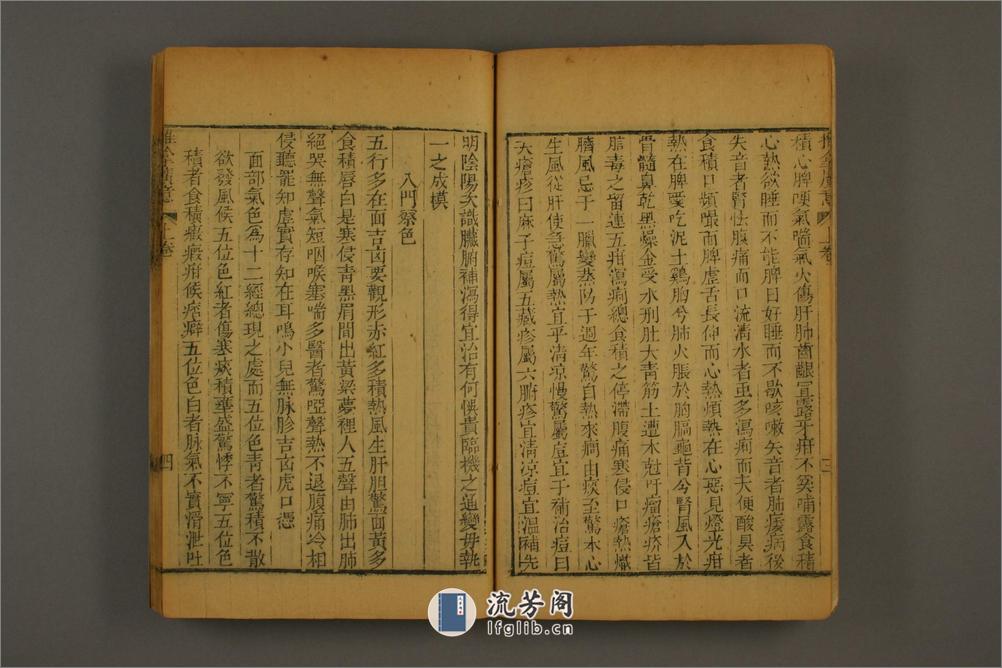 積心脾哽氣喘氣火傷肝肺齒齦宣露牙疳不笑哺露食積
心熱欲睡而不能脾日好睡而不歇咳嗽失音者肺痿病後
失音者腎怯腹痛而口流清水者虫多瀉痢而大便酸臭者
食積口頻嘬而脾虛舌長伸而心熱煩熱在心惡見燈光疳
熱在脾愛吃泥土鷄胸兮肺火脹於胸膈龜背兮腎風入於
骨髓鼻乾黑燥金受水刑肚大青筋土遭木尅丹瘤瘡疥皆
胎毒之留連五疳瀉痢總食積之停滯腹痛寒侵口瘡熱爞
臍風忌于一臘變蒸防于週年驚自熱來癇由痰至驚本心
生風從肝使急驚屬熱宜乎清凉慢驚屬虛宜于補治痘曰
天瘡疹曰麻子痘屬五藏疹屬六腑疹宜清凉痘宜溫補先
上卷
三
明陰陽次識臟腑補瀉得宜治有何悞貴臨機之通變毋執
一之成模
入門察色
五行多在面吉凶要觀形赤紅多積熱風生肝胆驚面黃多
食積唇白是寒侵青黑眉間出黃粱夢裡人五聲由肺出肺
絕哭無聲氣短咽喉塞喘多醫者驚啞聲熱不退腹痛冷相
侵聽罷知虛實存知在耳鳴小兒無脉診吉凶虎口憑
面部氣色為十二經總現之處而五位色青者驚積不散
欲發風候五位色紅者傷寒痰積壅盛驚悸不寧五位色
積者食積癥瘕疳候痞癖五位色白者脉氣不實滑泄吐
上卷
四
流芳阁
lfglib.cn